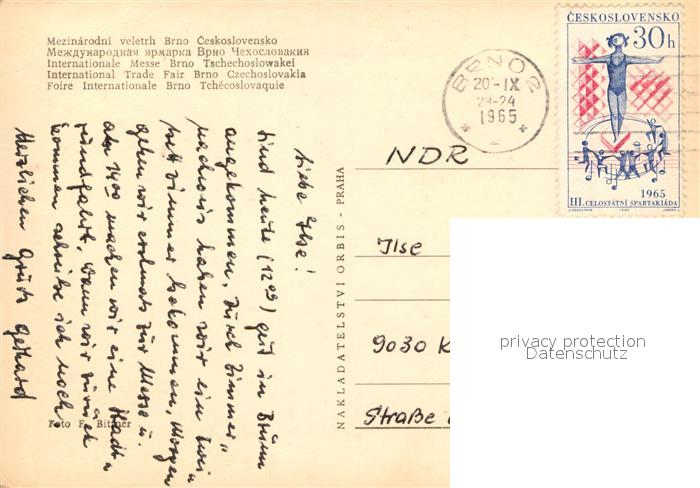 Mezinárodní veletrh Brno Československo
Международная ярмарка Врно Чехословакия
Internationale Messe Brno Tschechoslowakei
International Trade Fair Brno Czechoslovakia
Foire Internationale Brno Tchécoslovaquie
ČESKOSLOVENSKO
30h
1965
III. CELOSTÁTNÍ SPARTAKIÁDA
BRNO 2
20.-IX
24
1965
Liebe Ilse!
Sind heute (12 09) gut in Brünn
angekommen, durch Zimmer„
nachweis haben wir ein zwei„
bett zimmer bekommen, Morgen
gehen wir erstmals zur Messe u.
am 14 00 machen wir eine Stadt„
rundfahrt, wann wir zurück
kommen schreibe ich noch
Herzlichen Gruß Gerhard
Foto F. Bittner
NAKLADATELSTVÍ ORBIS - PRAHA
NDR
Ilse
9030 K
Straße
privacy protection
Datenschutz